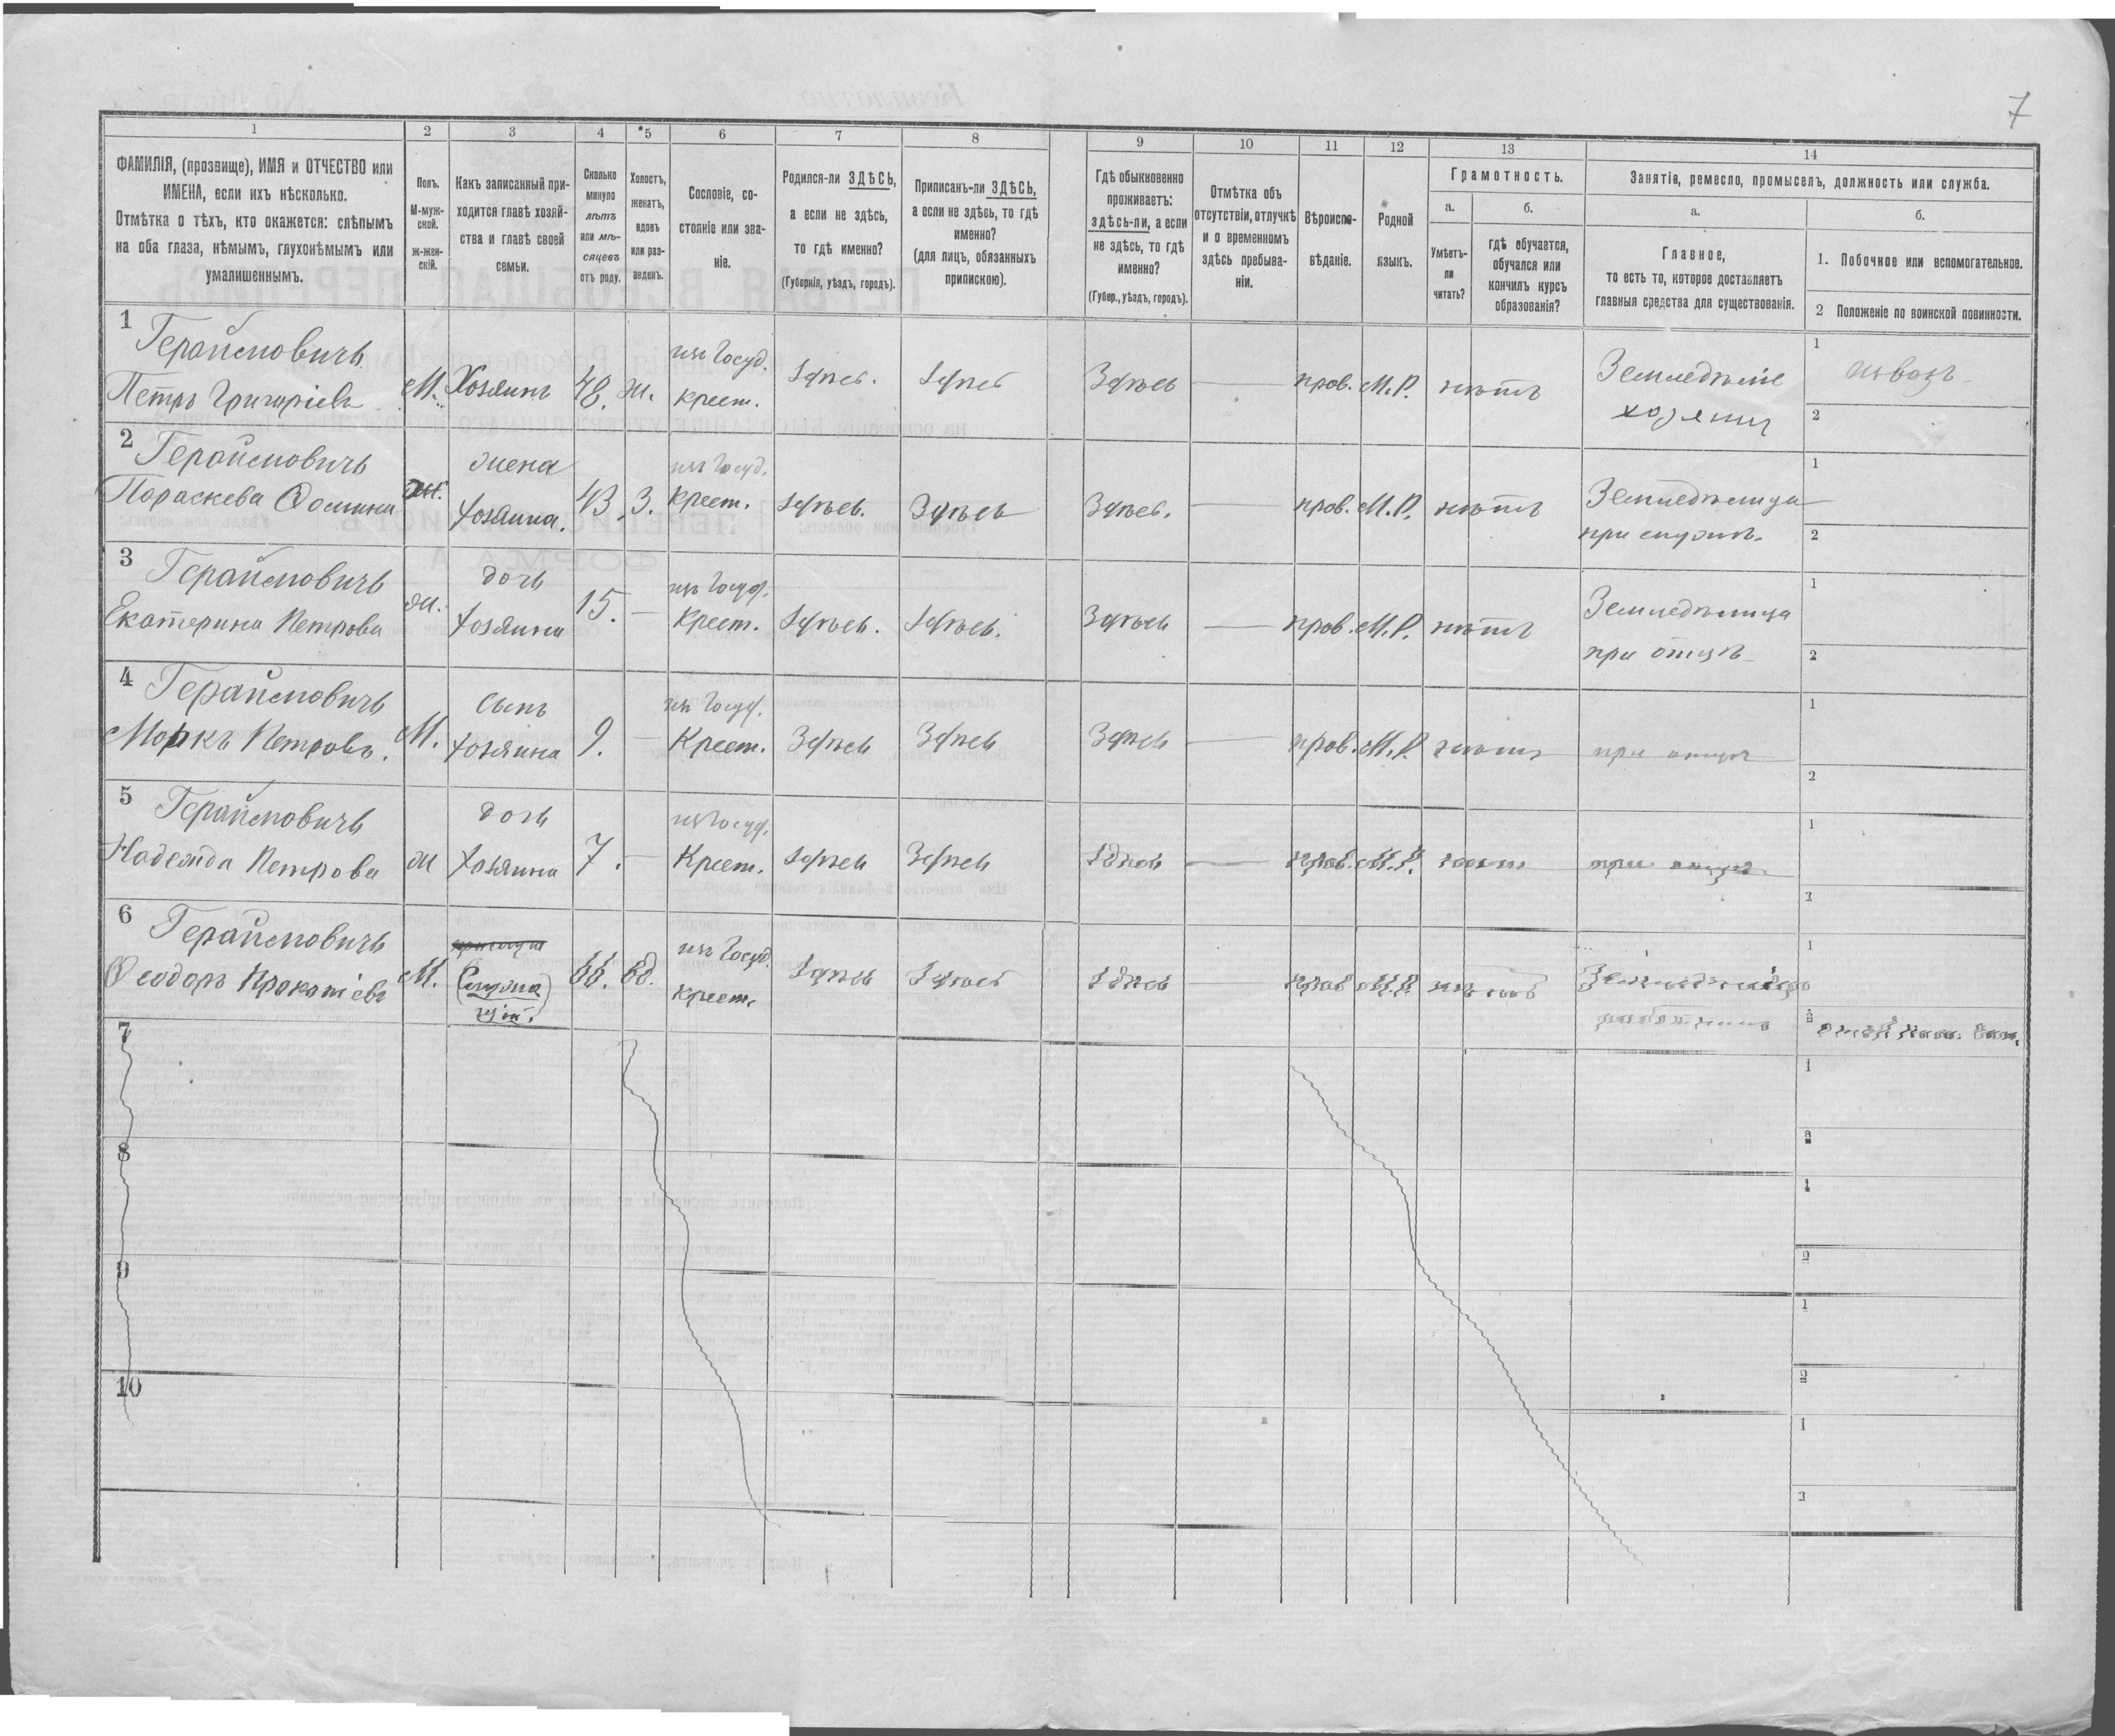 7
1
2
3
4
5
6
7
8
9
10
11
12
13
14
ФАМИЛІЯ, (прозвище), ИМЯ и ОТЧЕСТВО или
ИМЕНА, если ихъ нѣсколько.
Отмѣтка о тѣхъ, кто окажется: слѣпымъ
на оба глаза, нѣмымъ, глухонѣмымъ или
умалишеннымъ.
Полъ.
М-муж-
ской.
ж-жен-
скій.
Какъ записанный при-
ходится главѣ хозяй-
ства и главѣ своей
семьи.
Сколько
минуло
лѣтъ
или мѣ-
сяцевъ
отъ роду.
Холостъ,
женатъ,
вдовъ
или раз-
веденъ.
Сословіе, со-
стояніе или зва-
ніе.
Родился-ли ЗДѢСЬ,
а если не здѣсь,
то гдѣ именно?
(Губернія, уѣздъ, городъ).
Приписанъ-ли ЗДѢСЬ,
а если не здѣсь, то гдѣ
именно?
(для лицъ, обязанныхъ
припискою).
Гдѣ обыкновенно
проживаетъ:
здѣсь-ли, а если
не здѣсь, то гдѣ
именно?
(Губер., уѣздъ, городъ).
Отмѣтка объ
отсутствіи, отлучкѣ
и о временномъ
здѣсь пребыва-
ніи.
Вѣроиспо-
вѣданіе.
Родной
языкъ.
Грамотность.
а.
Умѣетъ-
ли
читать?
б.
гдѣ обучается,
обучался или
кончилъ курсъ
образованія?
Занятіе, ремесло, промыселъ, должность или служба.
а.
Главное,
то есть то, которое доставляетъ
главныя средства для существованія.
б.
1. Побочное или вспомогательное.
2 Положеніе по воинской повинности.
1 Герайсмовичъ
Петръ Григоріевъ
М.
Хозяинъ
48.
ж.
изъ Госуд.
крест.
Здѣсь.
Здѣсь
Здѣсь
прав.
М.Р.
нѣтъ
Земледѣліе
хозяинъ
1 извозъ
2
2 Герайсмовичъ
Параскева Фомина
ж.
жена
хозяина.
43.
З.
изъ Госуд.
крест.
Здѣсь.
Здѣсь
Здѣсь.
прав.
М.Р.
нѣтъ
Земледѣлица
при
1
2
3 Герайсмовичъ
Екатерина Петрова
ж.
дочь
хозяина
15.
изъ Госуд.
Крест.
Здѣсь.
Здѣсь.
Здѣсь
прав.
М.Р.
нѣтъ
Земледѣлица
при отцѣ
1
2
4 Герайсмовичъ
Маркъ Петровъ.
М.
сынъ
хозяина
9.
изъ Госуд.
Крест.
Здѣсь
Здѣсь
Здѣсь
прав.
М.Р.
нѣтъ
при отцѣ
1
2
5 Герайсмовичъ
Надежда Петрова
ж
дочь
хозяина
7.
изъ Госуд.
Крест.
Здѣсь
Здѣсь
Здѣсь
прав.
М.Р.
нѣтъ
при отцѣ
1
2
6 Герайсмовичъ
Феодоръ
М.
66.
вд.
изъ Госуд.
крест.
Здѣсь
Здѣсь
Здѣсь
прав
М.Р.
1
2
7
1
2
8
1
2
9
1
2
10
1
2